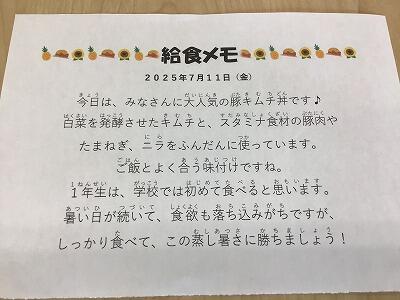 給食メモ
2025年7月11日（金）
今日は、みなさんに大人気の豚キムチ丼です♪
白菜を発酵させたキムチと、スタミナ食材の豚肉や
たまねぎ、ニラをふんだんに使っています。
ご飯とよく合う味付けですね。
1年生は、学校では初めて食べると思います。
暑い日が続いて、食欲も落ち込みがちですが、
しっかり食べて、この蒸し暑さに勝ちましょう！